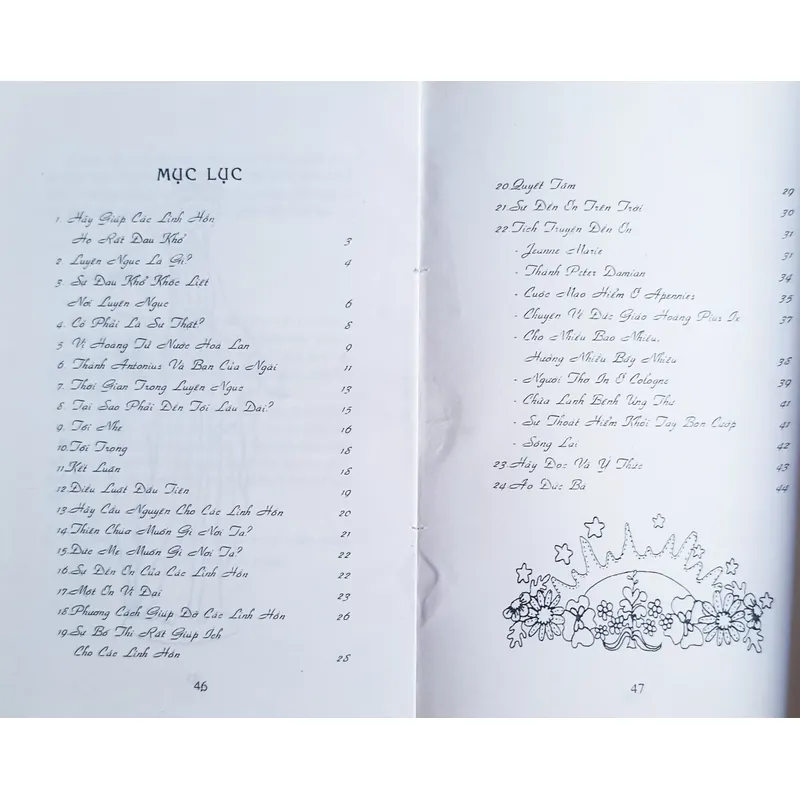 MỤC LỤC
1. Hãy Giúp Các Linh Hồn
Họ Rất Đau Khổ 3
2. Luyện Ngục Là Gì? 4
3. Sự Đau Khổ Khốc Liệt
Nơi Luyện Ngục 6
4. Có Phải Là Sự Thật? 8
5. Vị Hoàng Tử Nước Hoà Lan 9
6. Thánh Antonius Và Bạn Của Ngài 11
7. Thời Gian Trong Luyện Ngục 13
8. Tại Sao Phải Đền Tội Lâu Dài? 15
9. Tội Nhẹ 16
10. Tội Trọng 18
11. Kết Luận 18
12. Điều Luật Đầu Tiên 19
13. Hãy Cầu Nguyện Cho Các Linh Hồn 20
14. Thiên Chúa Muốn Gì Nơi Ta? 21
15. Đức Mẹ Muốn Gì Nơi Ta? 22
16. Sự Đền Ơn Của Các Linh Hồn 22
17. Một Ơn Vĩ Đại 23
18. Phương Cách Giúp Đỡ Các Linh Hồn 26
19. Sự Bố Thí Rất Giúp Ích
Cho Các Linh Hồn 28
46
20. Quyết Tâm 29
21. Sự Đền Ơn Trên Trời 30
22. Tích Truyện Đền Ơn 31
- Jeanne Marie 31
- Thánh Peter Damian 34
- Cuộc Mạo Hiểm Ở Apennies 35
- Chuyện Về Đức Giáo Hoàng Pius Ix 37
- Cho Nhiều Bao Nhiêu,
Hưởng Nhiều Bấy Nhiêu 38
- Người Thợ In Ở Cologne 39
- Chữa Lành Bệnh Ung Thư 41
- Sự Thoát Hiểm Khỏi Tay Bọn Cướp 41
- Sống Lại 42
23. Hãy Đọc Và Ý Thức 43
24. Áo Đức Bà 44
47